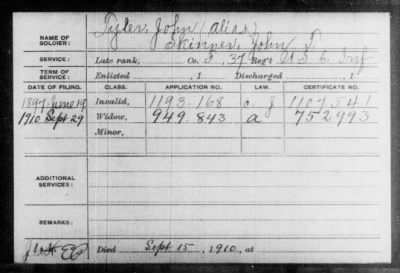 NAME OF SOLDIER: Tyler, John (alias)
Skinner, John T
SERVICE: Late rank, Co. F, 37 Reg't U.S.C. Inf
TERM OF SERVICE: Enlisted , 1 Discharged , 1
DATE OF FILING. CLASS. APPLICATION NO. LAW. CERTIFICATE NO.
1897 June 19 Invalid, 1193.168 1107.541
1910 Sept 29 Widow, 949.843 a 752993
Minor,
ADDITIONAL SERVICES:
REMARKS:
Died Sept 15, 1910, at